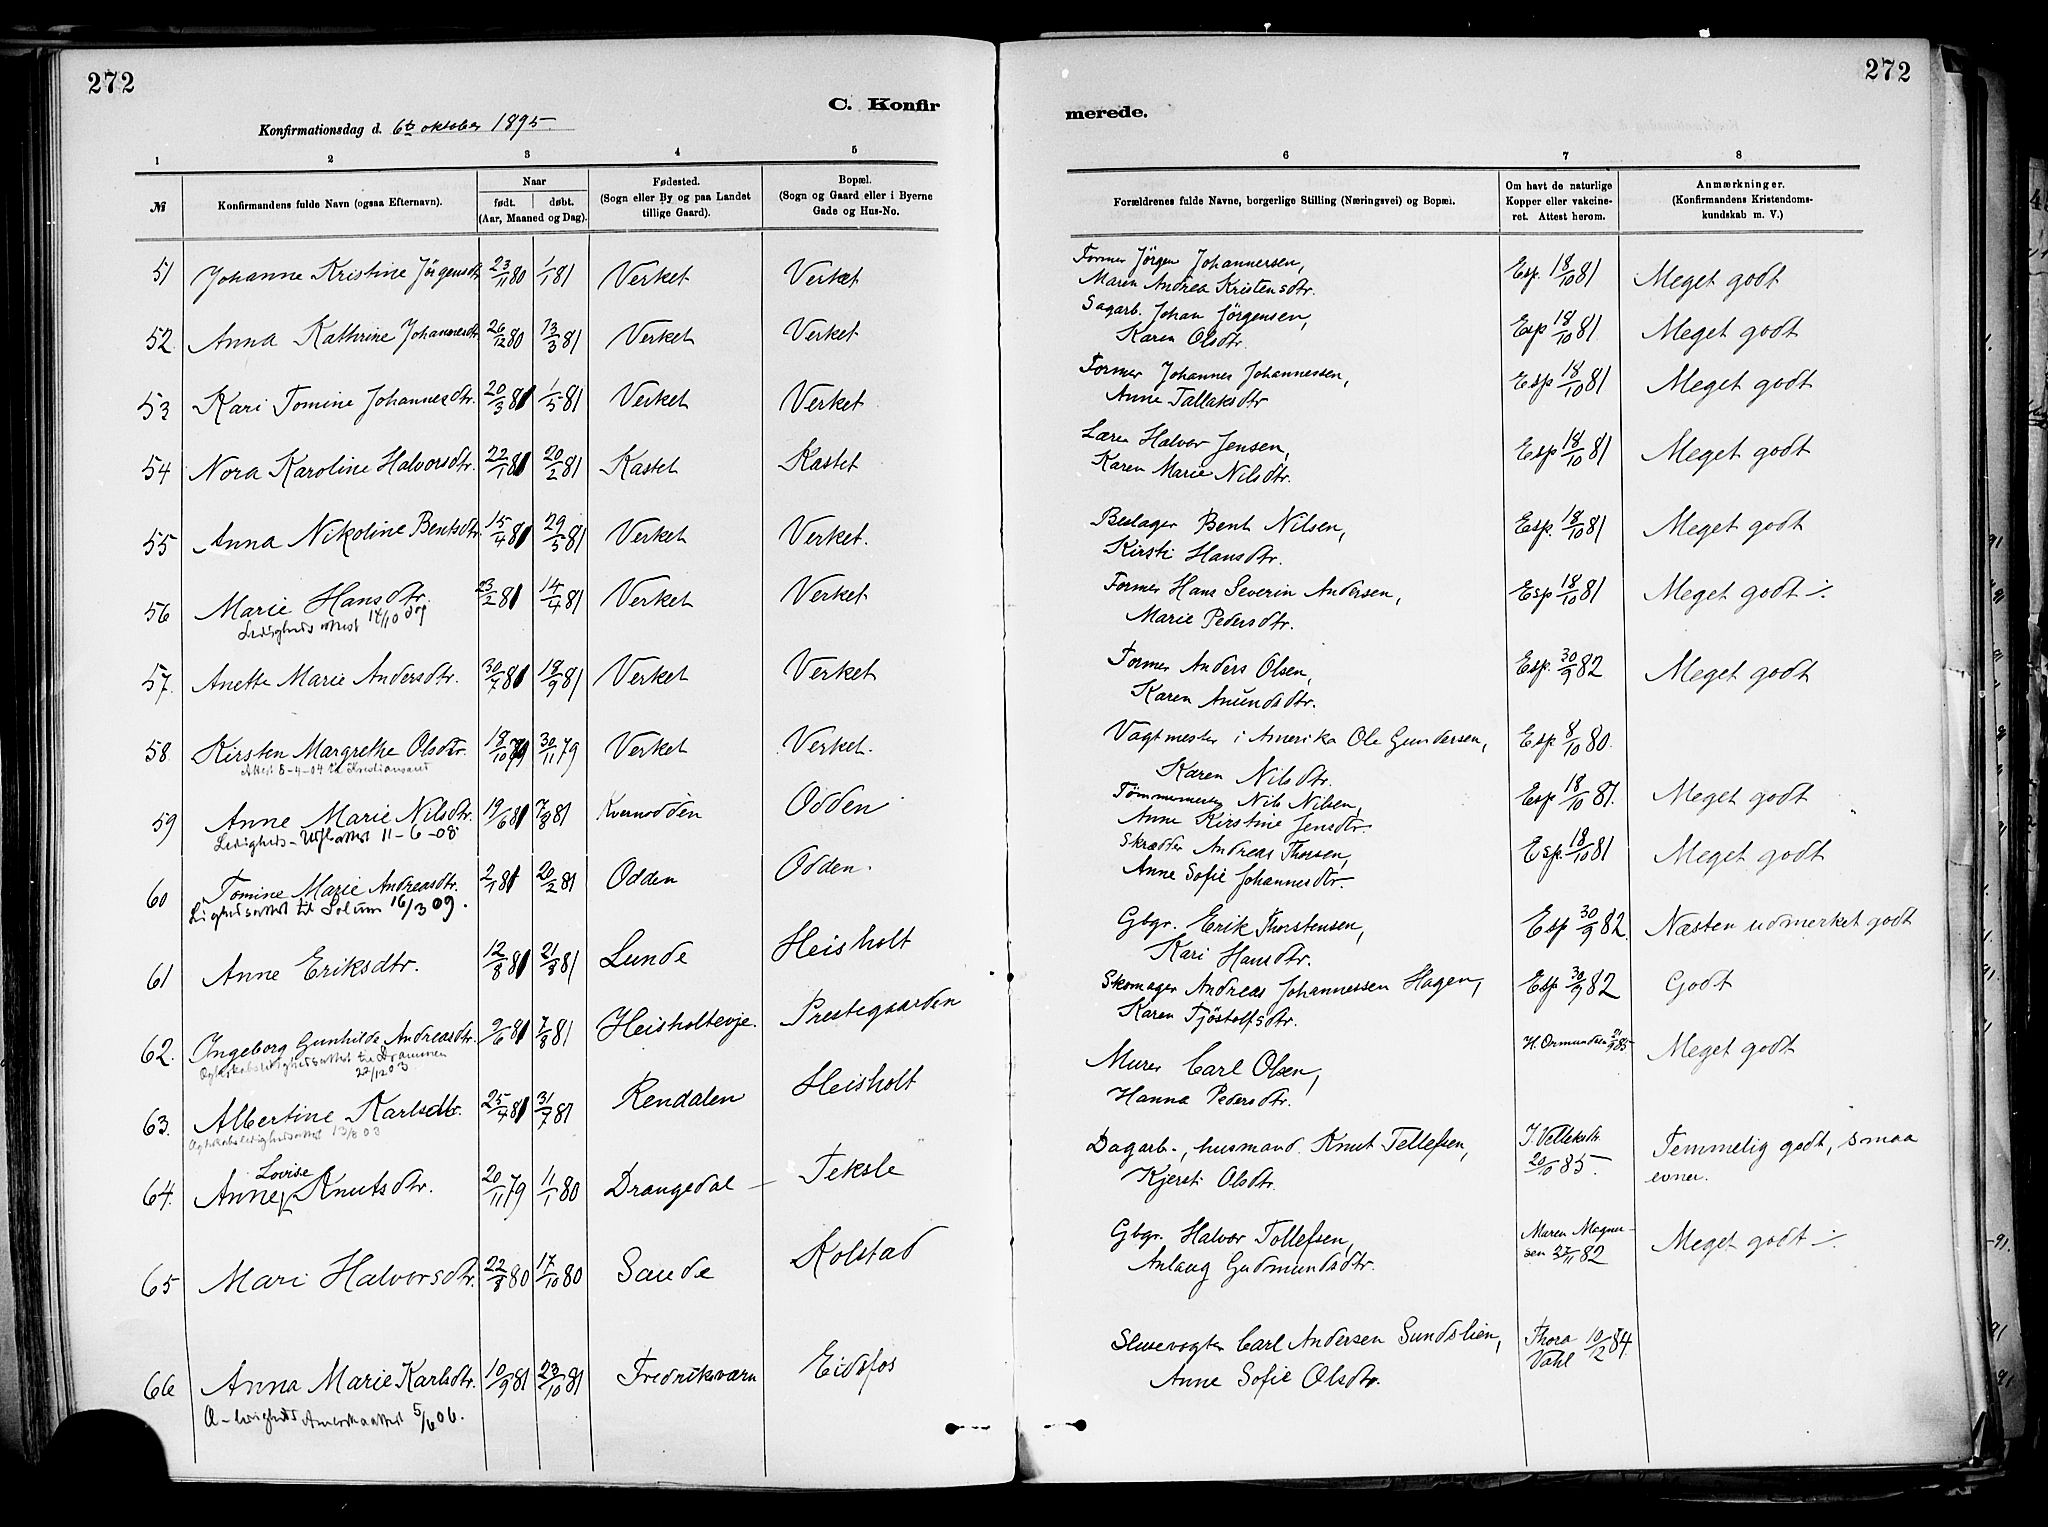 272
272
C. Konfir
merede.
Konfirmationsdag d. 6te oktober 1895
1 2 3 4 5
6 7 8
№
Konfirmandens fulde Navn (ogsaa Efternavn).
Naar
født. døbt.
(Aar, Maaned og Dag).
Fødested.
(Sogn eller By og paa Landet
tillige Gaard).
Bopæl.
(Sogn og Gaard eller i Byerne
Gade og Hus-No.
Forældrenes fulde Navne, borgerlige Stilling (Næringsvei) og Bopæl.
Om havt de naturlige
Kopper eller vakcine-
ret. Attest herom.
Anmærkninger.
(Konfirmandens Kristendoms-
kundskab m. V.)
51 Johanne Kristine Jörgensdtr 23/11 80 1/1 81 Verket Verket
Former Jörgen Johannersen, Esp. 18/10 81 Meget godt
Maren Andrea Kristensdtr.
52. Anna Kathrine Johannesdtr 26/12 80 13/3 81 Verket Verket
Sagarb. Johan Jörgensen, Esp 18/10 81. Meget godt
Karen Olsdtr.
53 Kari Tomine Johannesdtr. 20/3 81 1/5 81 Verket Verket
Former Johannes Johannessen, Esp 18/10 81 Meget godt
Anne Tallaksdtr
54 Nora Karoline Halvorsdtr. 22/1 81 20/2 81 Kastet Kastet
Lærer Halvor Jensen, Esp 18/10 81 Meget godt
Karen Marie Nilsdtr.
55 Anna Nikoline Bentsdtr. 15/4 81 29/5 81 Verket Verket.
Beslager Bent Nilsen, Esp. 18/10 81 Meget godt
Kirsti Hansdtr.
56 Marie Hansdtr. 23/2 81 14/4 81 Verket Verket
Ledigheds attest 14/10 09
Former Hans Severin Andersen, Esp 18/10 81 Meget godt ./.
Marie Pedersdtr.
57. Anette Marie Andersdtr. 30/7 81 18/9 81 Verket Verket
Former Anders Olsen, Esp. 30/9 82 Meget godt
Karen Anundsdtr.
58. Kirsten Margrethe Olsdtr. 18/10 79 30/11 79 Verket Verket.
Attest 8-4-04 til Kristiansand
Vagtmester i Amerika Ole Gundersen, Esp. 8/10 80.
Karen Nilsdtr.
59 Anne Marie Nilsdtr. 19/6 81 7/8 81 Kvernodden Odden
Ledigheds- Uflattest 11-6-08
Tömmermester Nils Nilsen, Esp 18/10 81. Meget godt
Anne Kirstine Jensdtr.
60 Tomine Marie Andreasdtr. 2/1 81 20/2 81 Odden Odden.
Ligheds attest til Solum 16/3 09.
Skrædder Andreas Thorsen, Esp. 18/10 81 Meget godt
Anne Sofie Johannesdtr.
61 Anne Eriksdtr. 12/8 81 21/8 81 Lunde Heisholt
Gbgr. Erik Thorstensen, Esp 30/9 82. Næsten udmerket godt
Kari Hansdtr.
62. Ingeborg Gunhilde Andreasdtr. 9/6 81 7/8 81 Heisholtevje. Prestegaarden
Ogteskabsledighedsattest til Drammen
22/12 03
Skomager Andreas Johannessen Hagen, Esp 30/9 82 Godt
Karen Tjöstolfsdtr.
63. Albertine Karlsdtr. 25/4 81 31/7 81 Rendalen Heisholt
Ogteskabsledighedsattest 13/8 03
Murer Carl Olsen, H. Ormundsen 21/9 85 Meget godt
Hanna Pedersdtr.
64. Anne Lovise Knutsdtr. 20/11 79 11/1 80 Drangedal – Teksle
Dagarb., husmand Knut Tellefsen, J. Velleksdtr 20/10 85. Temmelig godt, smaa
Kjersti Olsdtr. evner.
65 Mari Halvorsdtr. 22/8 80 17/10 80 Saude Kolstad
Gbgr. Halvor Tollefsen, Maren Magnus- Meget godt ./.
Anlaug Gudmundsdtr. sen 27/11 82
66 Anna Marie Karlsdtr. 10/9 81 23/10 81 Fredriksværn Eidsfos
A-ledigheds Amerikaattest 5/6 06.
Slusevogter Carl Andersen Sundslien, Thora 10/12 84.
Anne Sofie Olsdtr. Vahl